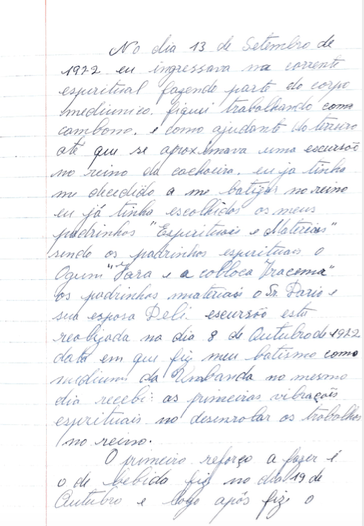 No dia 13 de Setembro de
1972 eu ingressava na corrente
espiritual fazendo parte do corpo
mediunico. fiquei trabalhando como
cambono. e como ajudante do terreiro
até que se aproximava uma escursão
no reino da cachoeira. eu ja tinha
me decidido a me batizar no reino
eu já tinha escolhidos os meus
padrinhos "Espirituais e Materiais"
sendo os padrinhos espirituais o
Ogum "Iara e a cabloca Iracema"
os padrinhos materiais o Sr Dario e
sua esposa Deli. escursão esta
realizada no dia 8 de Outubro de 1972
data em que fiz meu batismo como
medium da Umbanda no mesmo
dia recebi: as primeiras vibrações
espirituais no desenrolar os trabalhos
no reino.
O primeiro reforço a fazer é
o de bebida fiz no dia 19 de
Outubro e logo após fiz o